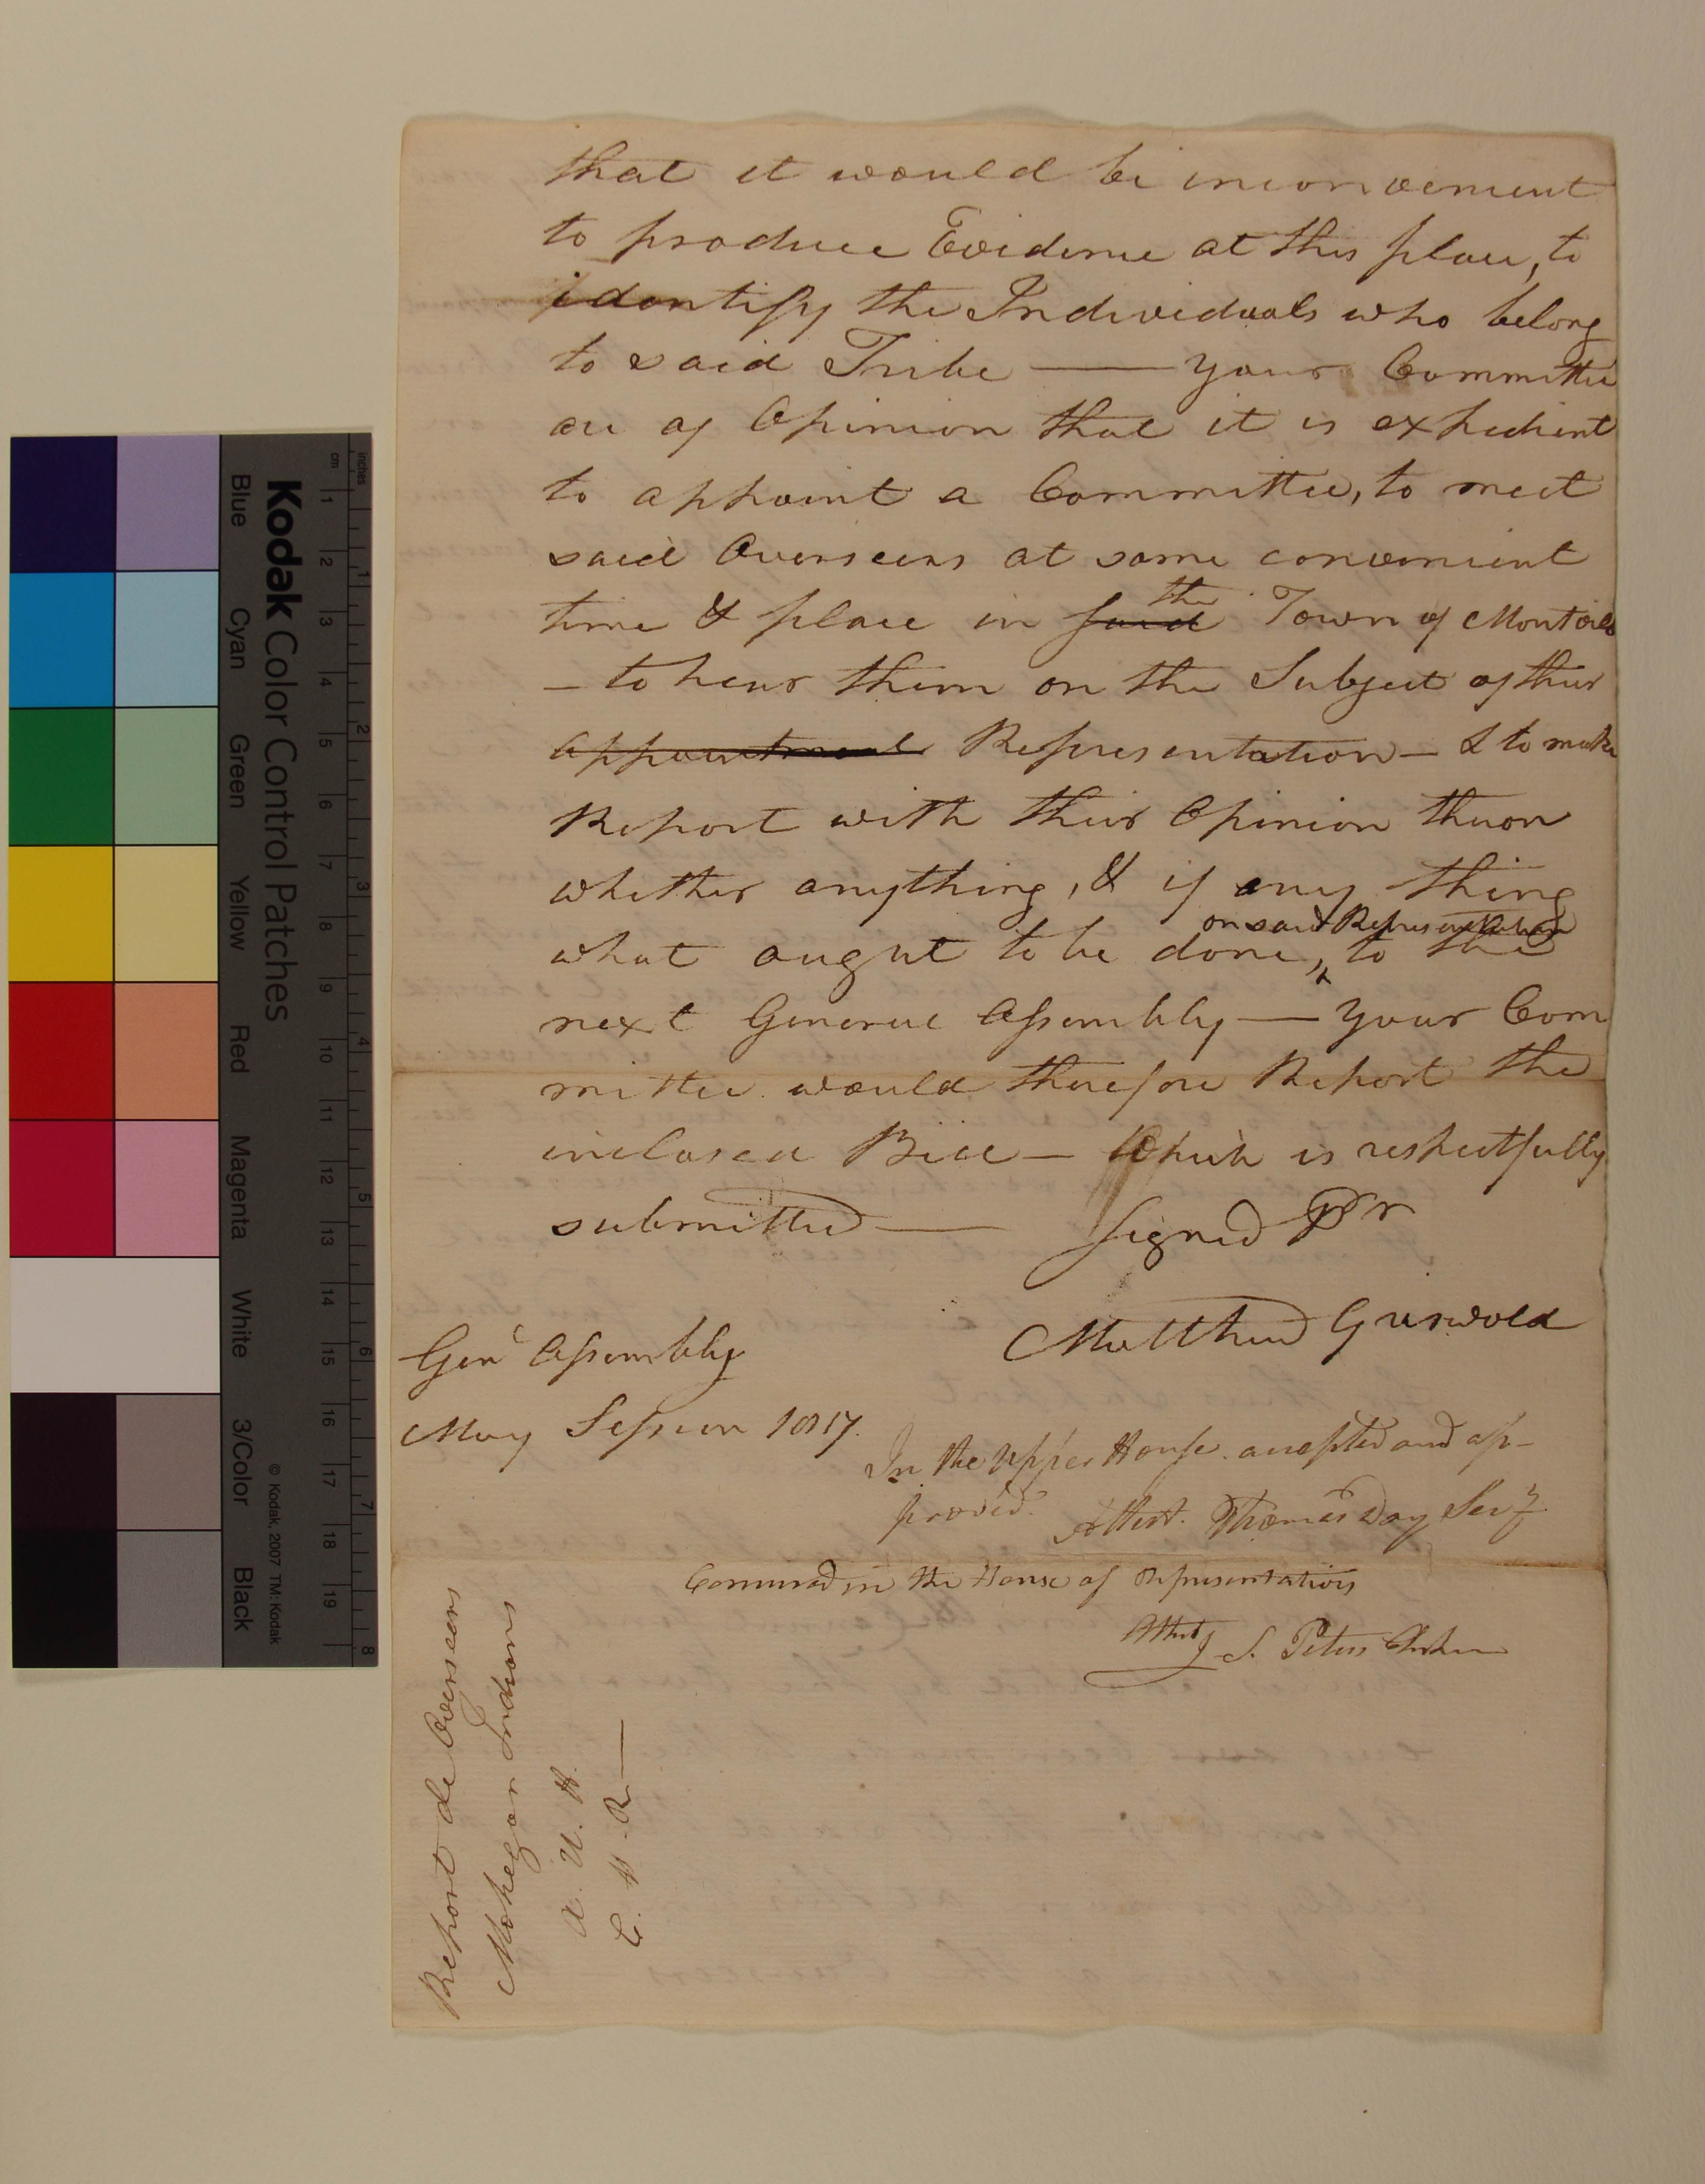 that it would be inconvenient
to produce Evidence at this place, to
identify the Individuals who belong
to said Tribe — your Committee
are of Opinion that it is expedient
to appoint a Committee, to meet
said Overseers at some convenient
time & place in said the Town of Montville
— to hear them on the Subject of their
appointment Representation — & to make
Report with their Opinion theron
whether anything, & if any thing
on said Representation
what ought to be done, to the
next General Assembly — your Com
mittee would therefore Report the
inclosed Bill — Which is respectfully
submitted — Signed Pr
Matthew Griswold
Genl Assembly
May Session 1817.
In the Upper House. accepted and ap-
proved. Attest. Thomas Day Secy
Concurred in the House of Representatives
Attest J. S. Peters Clerk
Report de Overseers
Mohegan Indians
A. U. H.
C. H. R —
Kodak Color Control Patches
Blue Cyan Green Yellow Red Magenta White 3/Color Black
© Kodak, 2007 TM: Kodak
cm 1 2 3 4 5 6 7 8 9 10 11 12 13 14 15 16 17 18 19
inches 1 2 3 4 5 6 7 8